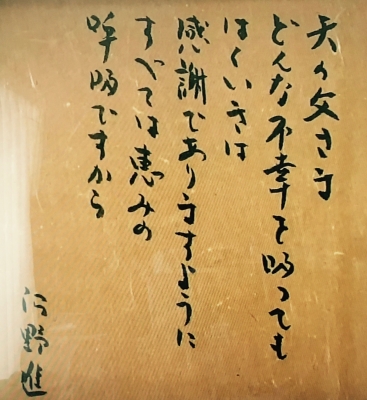 天の父さま
どんな不幸を吸っても
はくいきは
感謝でありますように
すべては恵みの
呼吸ですから
河野進